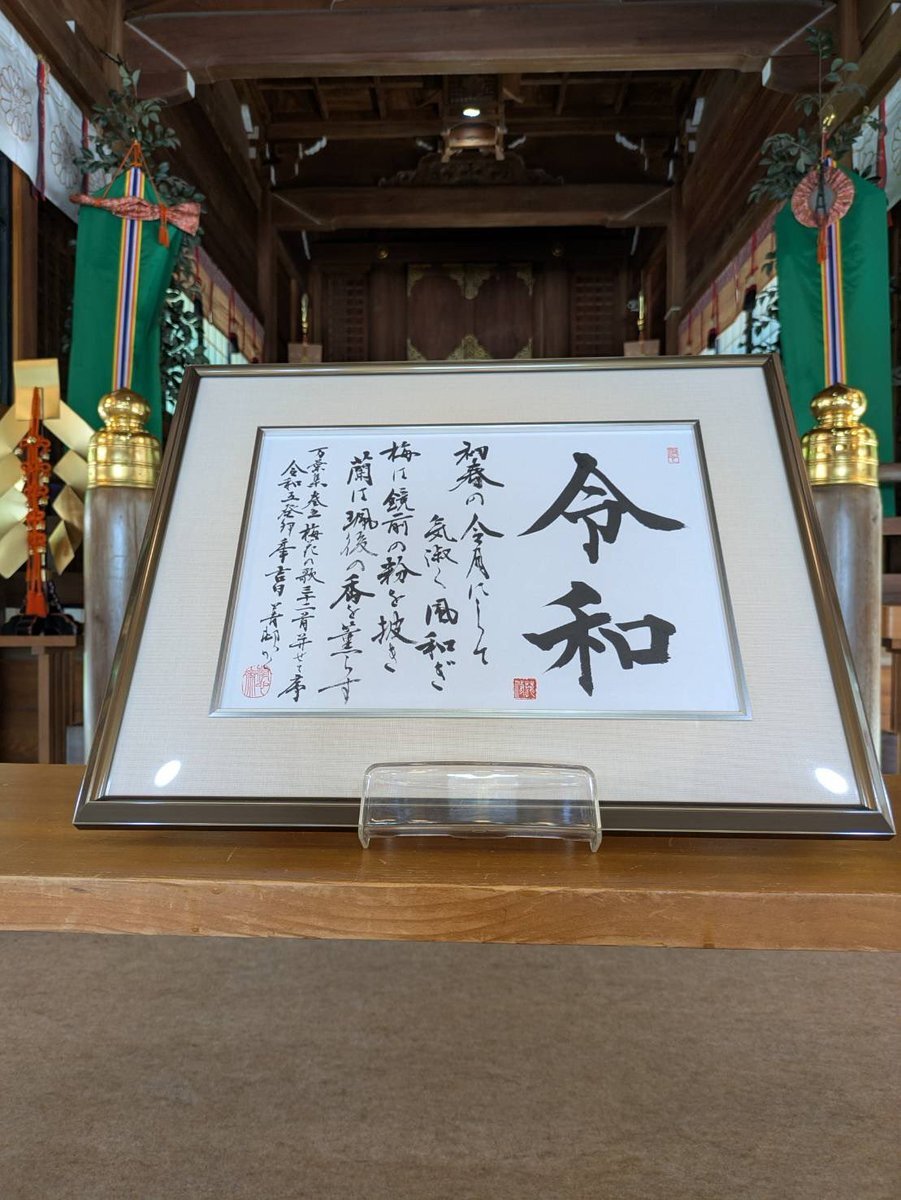 令和
初春の令月にして
気淑く風和ぎ
梅は鏡前の粉を披き
蘭は珮後の香を薫らす
万葉集巻五 梅花の歌三十二首并せて序
令和五癸卯年吉日 菁邨